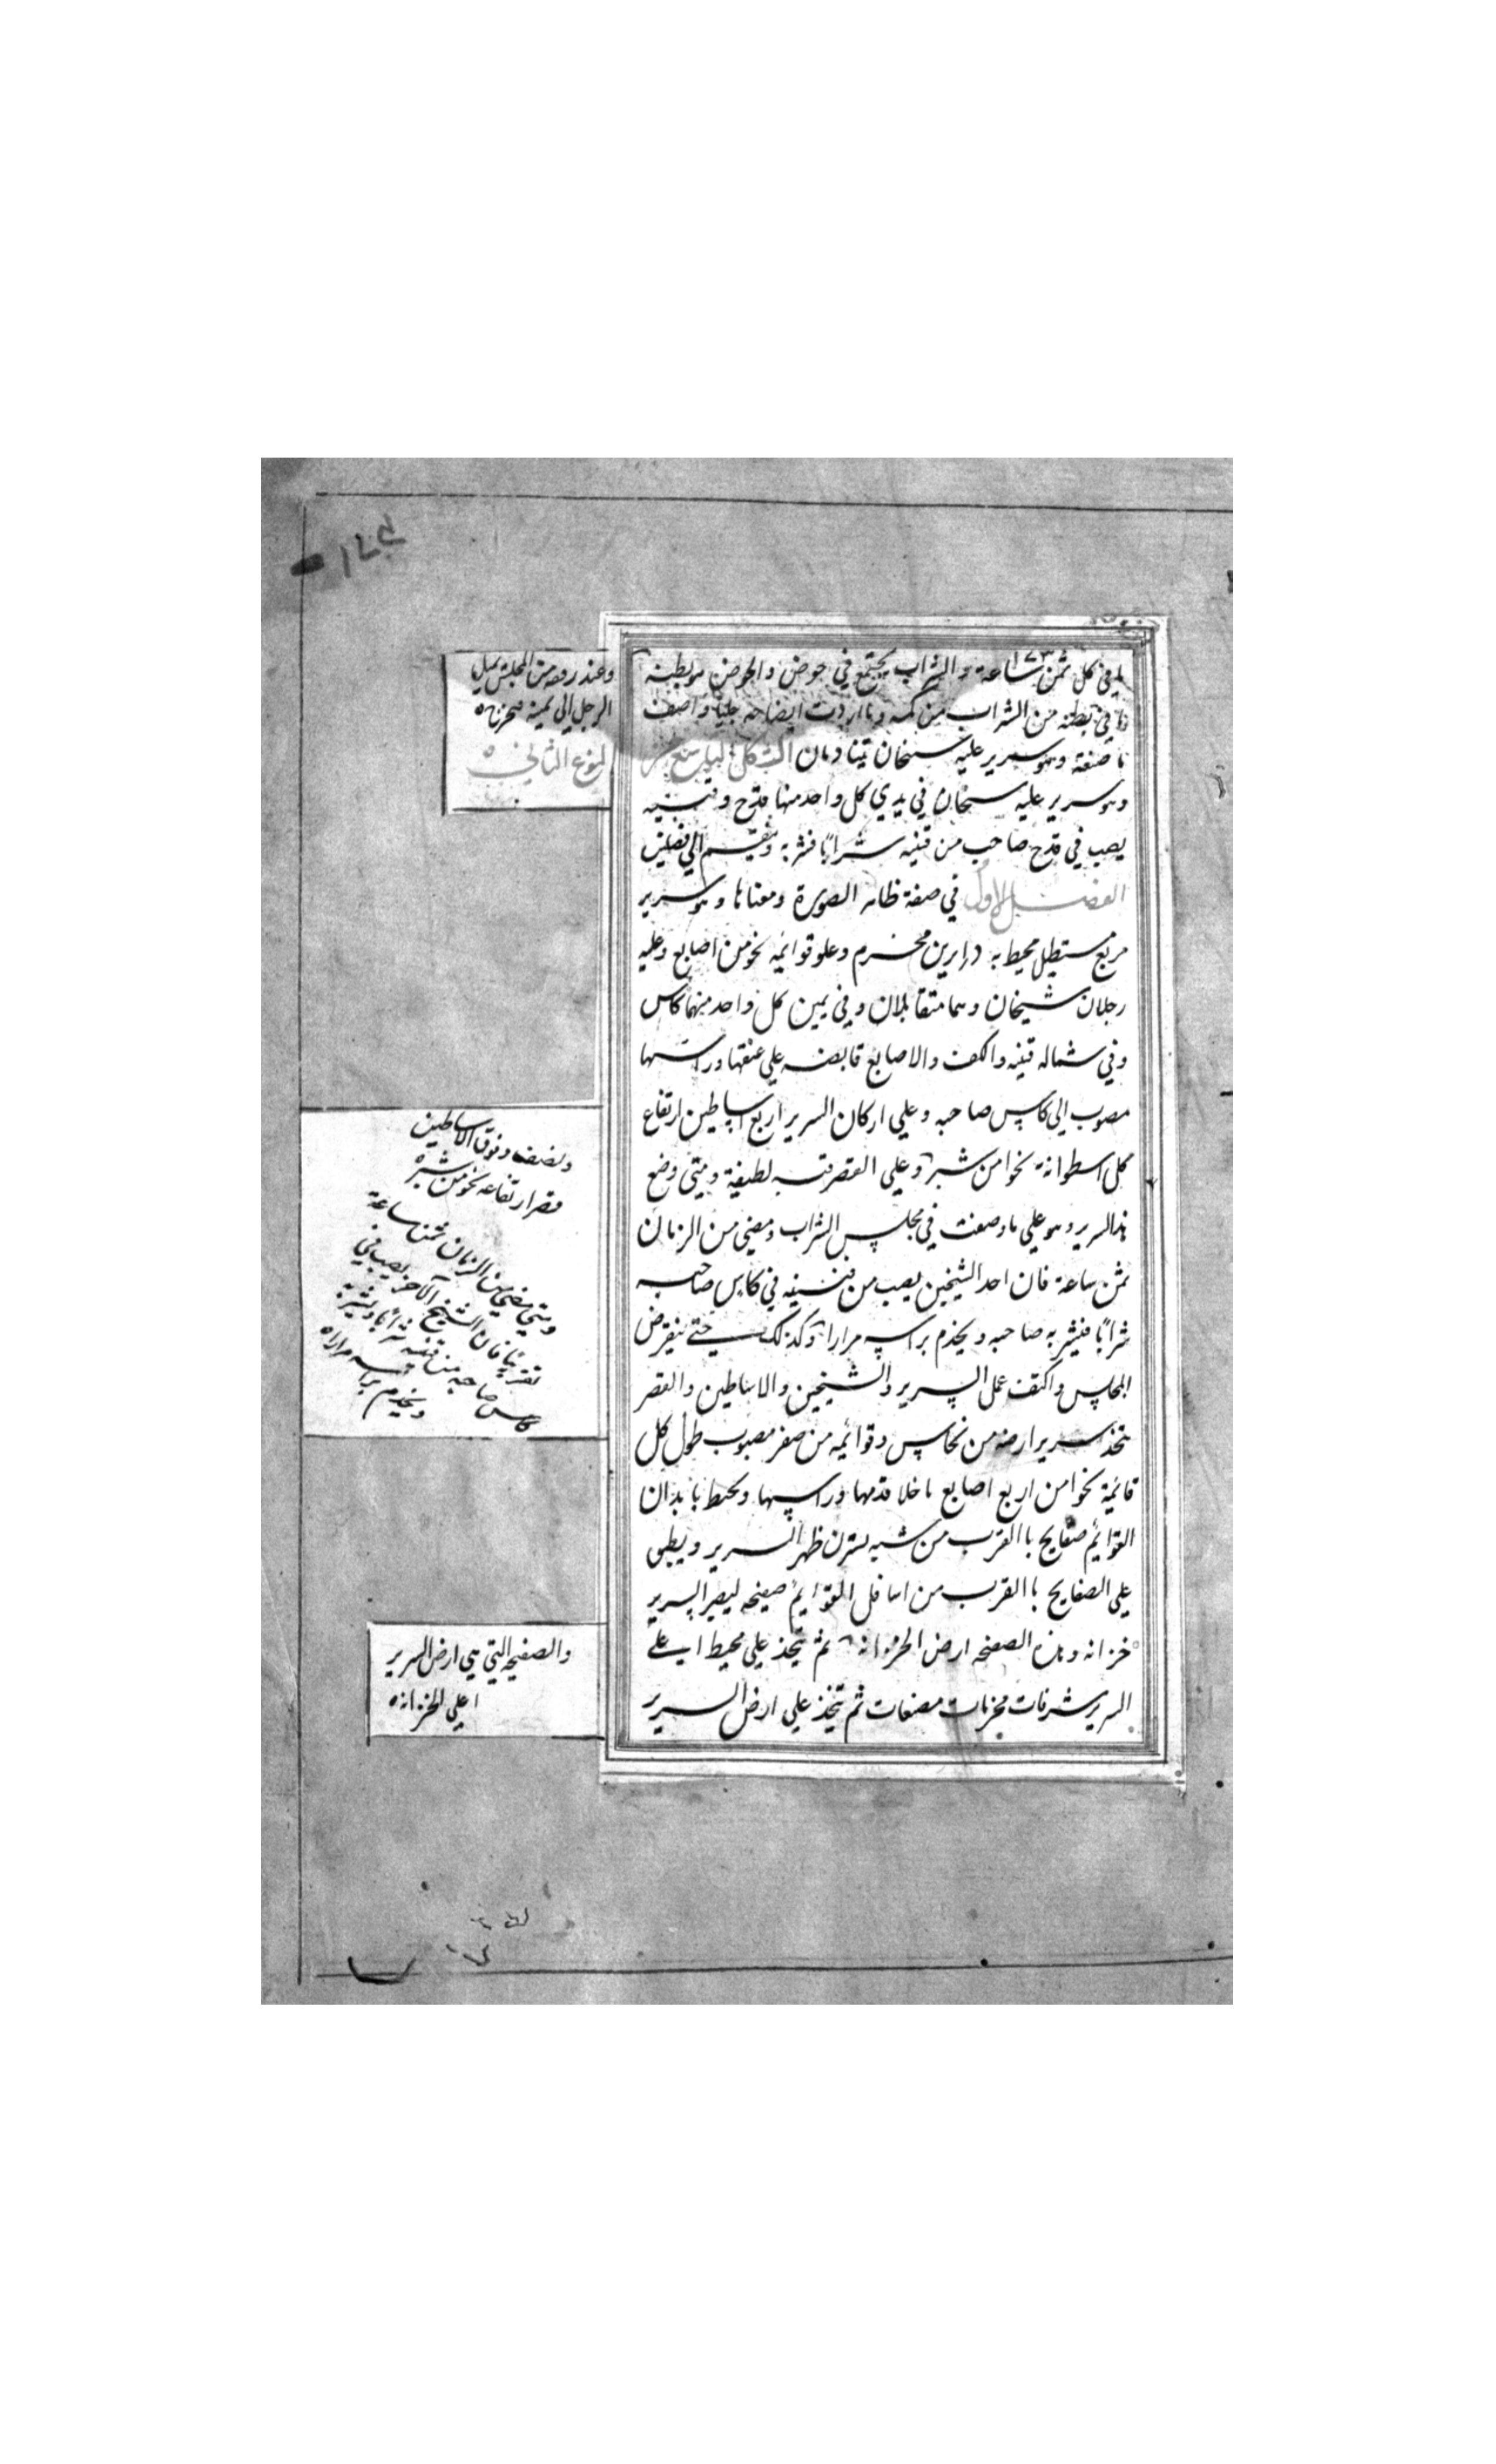 في كل ثمن ساعة والشراب يجتمع في حوض والحوض بطنه
في بطنه من الشراب من كمه وما اردت ايضاحه جلياً واصف
ما صنعته وهو سرير عليه شيخان يتنادمان الشكل السابع من
وهو سرير عليه شيخان في يدي كل واحد منهما قدح وقنينه
يصب في قدح صاحبه من قنينه شراباً فيشربه وينقسم الي فصلين
الفصل الاول في صفة ظاهر الصورة ومعناها وهو سرير
مربع مستطيل محيط به درابزين مخرم وعلو قوائمه نحو من اصابع وعليه
رجلان شيخان وهما متقابلان وفي يمين كل واحد منهما كاس
وفي شماله قنينه والكف والاصابع قابضه علي عنقها وراسها
مصوب الي كاس صاحبه وعلي اركان السرير اربع اساطين ارتفاع
كل اسطوانة نحوا من شبر وعلي القصر قبه لطيفة ومتي وضع
هذا السرير وهو علي ما وصفت في مجلس الشراب ومضي من الزمان
ثمن ساعة فان احد الشيخين يصب من قنينه في كاس صاحبه
شراباً فيشربه صاحبه ويخدم براسه مرارا وكذلك حتي ينقرض
المجلس واكتف عمل السرير والشيخين والاساطين والقصر
يتخذ سرير ارضه من نحاس وقوائمه من صفر مصبوب طول كل
قائمة نحوا من اربع اصابع ما خلا قدمها وراسها ويحيط بابدان
القوايم صفايح باالقرب من شبه يسترن ظهر السرير ويطبق
علي الصفايح باالقرب من اسافل القوايم صفيحه ليصير السرير
خزانه وهذه الصفحه ارض الخزانه ثم يتخذ علي محيط اعلي
السرير شرفات مخرمات مصنعات ثم يتخذ علي ارض السرير
وعند رفعه من المجلس يميل
الرجل الي يمينه فيخرج
النوع الثاني
ونصف وفوق الاساطين
قصر ارتفاعه نحو من شبر
ومتي مضي من الزمان ثمن ساعة
تقريباً فان الشيخ الآخر يصب في
كاس صاحبه من قنينه شراباً ويشربه
ويخدم براسه مرارا
والصفيحه التي هي ارض السرير
اعلي الخزانه